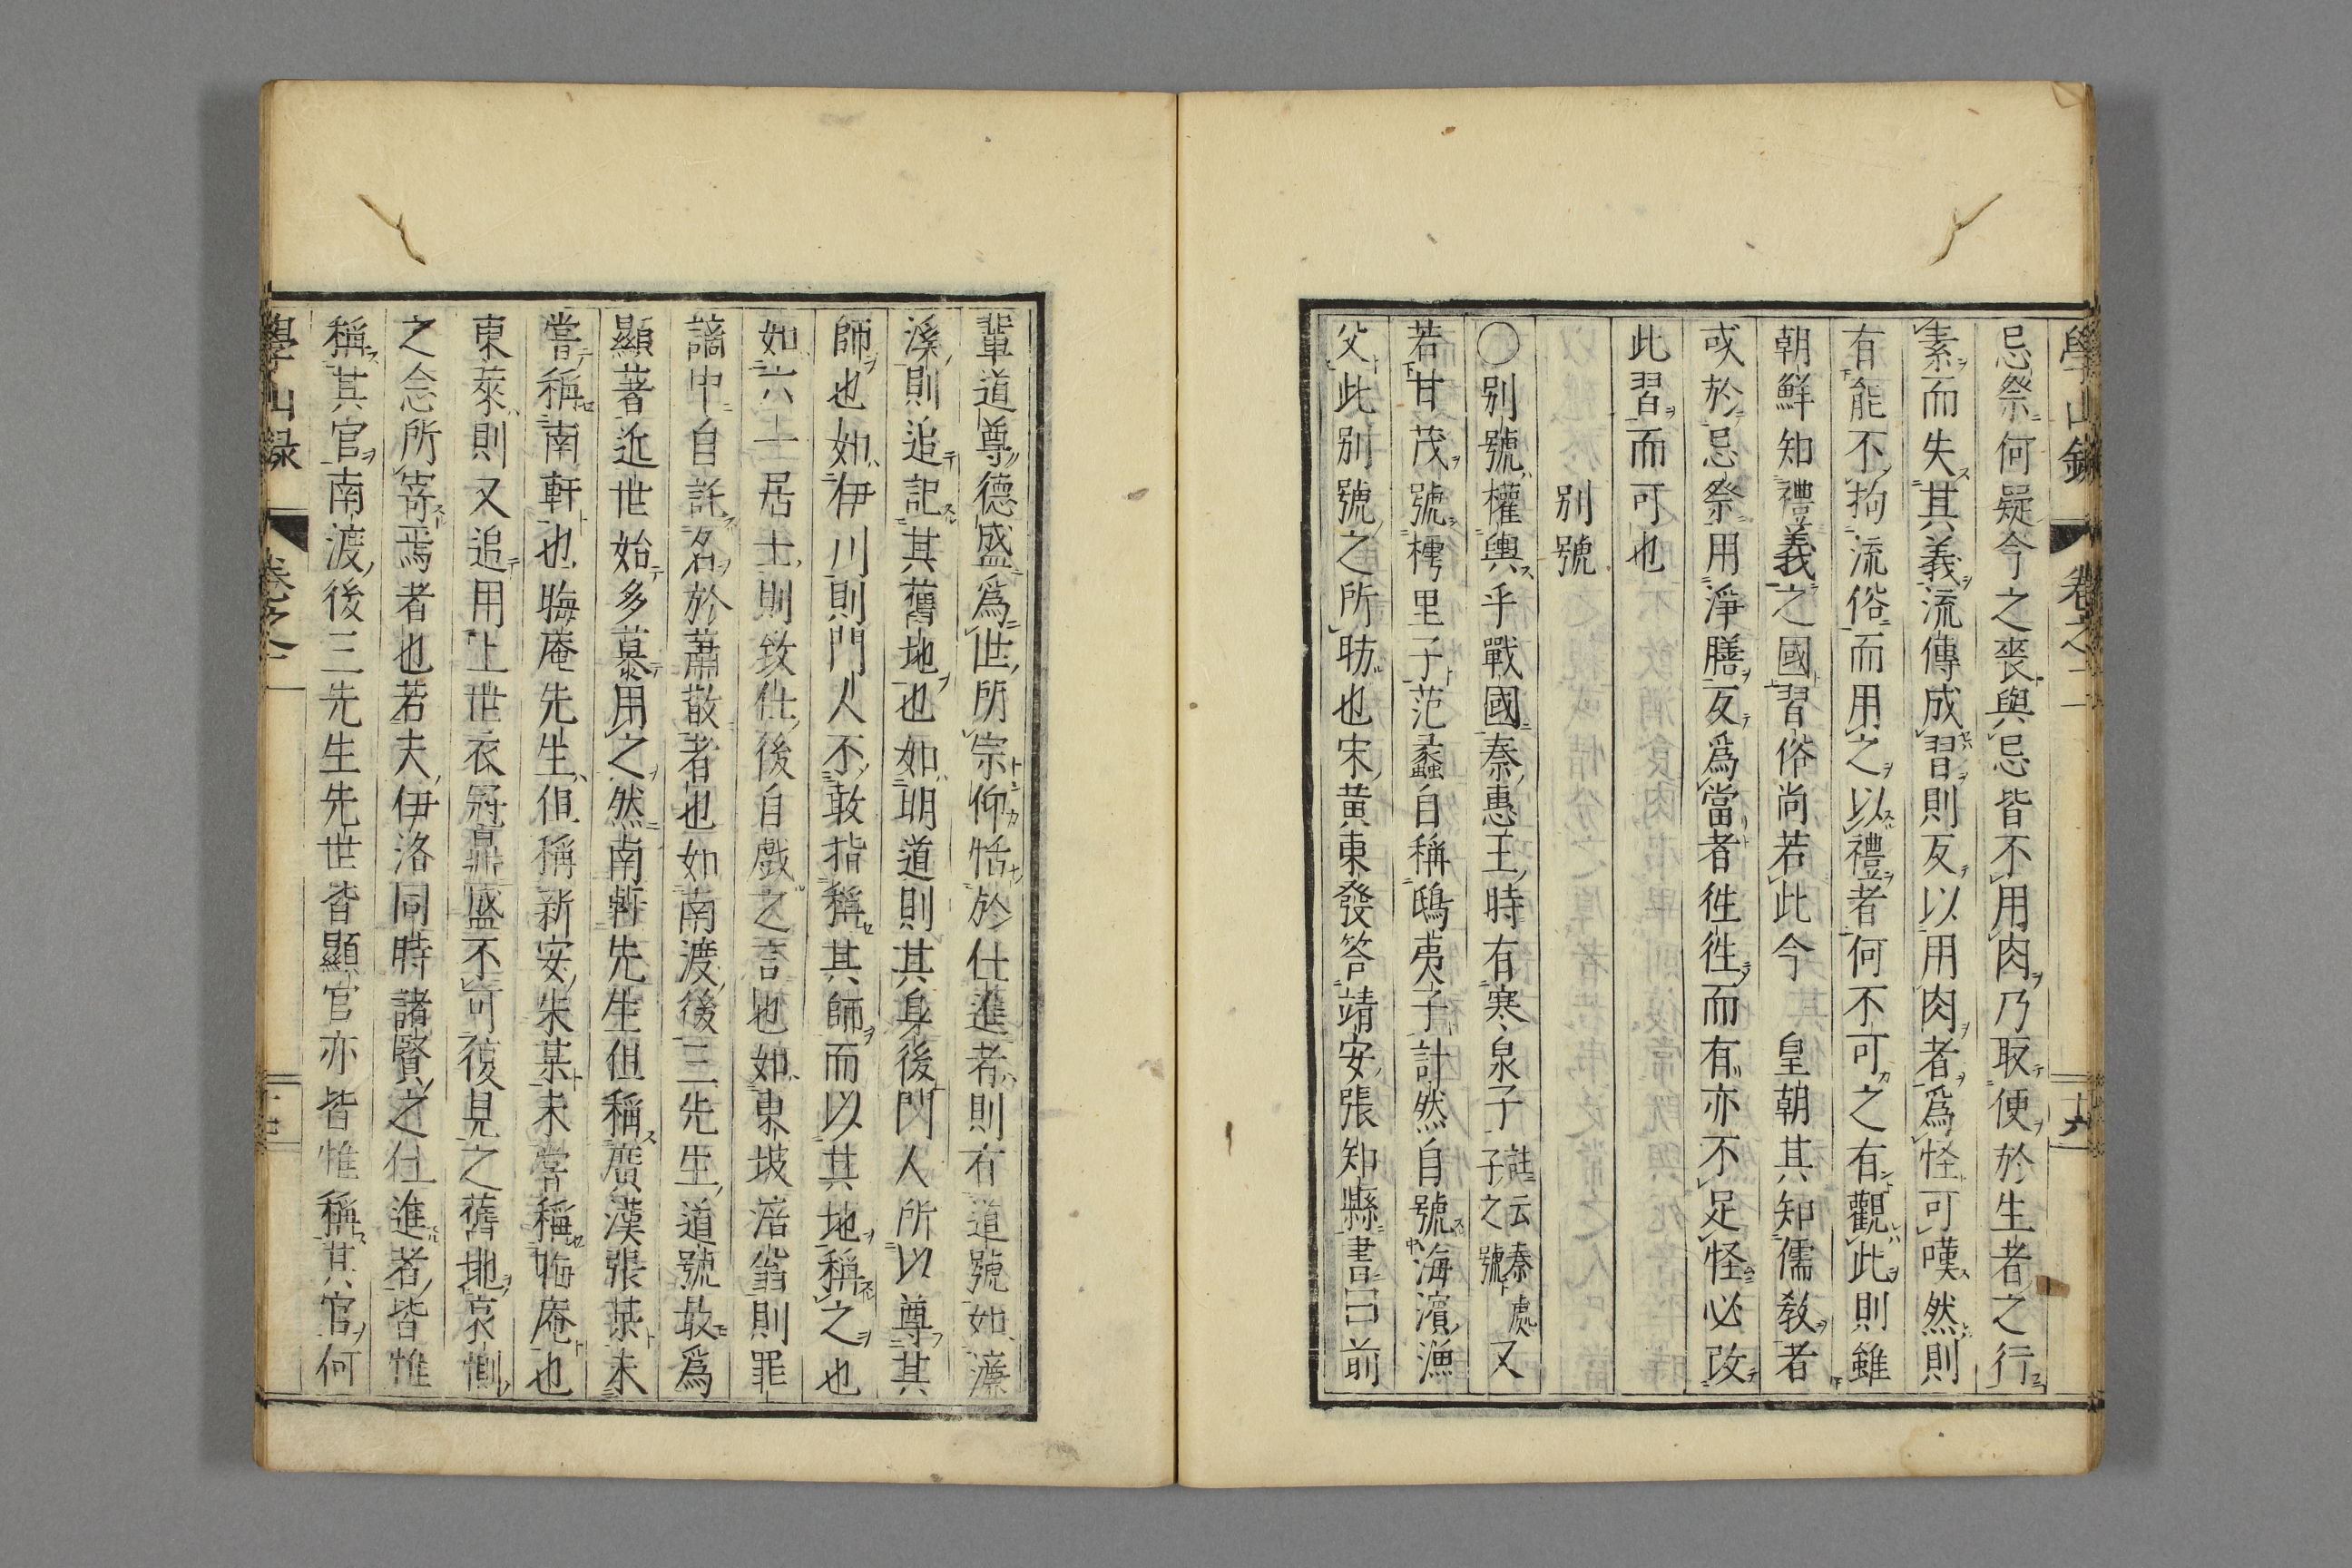 學山録 卷之二 十六
忌祭何疑今之喪與忌皆不用肉乃取便於生者之行
素而失其義流傳成習則反以用肉者爲怪可嘆然則
有能不拘流俗而用之以禮者何不可之有觀此則雖
朝鮮知禮義之國習俗尚若此今 皇朝其知儒教者
或於忌祭用淨膳反爲當者徃徃而有亦不足怪必改
此習而可也
別號
○別號權輿乎戰國秦惠王時有寒泉子 註云秦處子之號 又
若甘茂號樗里子范蠡自稱鴟夷子計然自號海濵漁
父此別號之所昉也宋黄東發答靖安張知縣書曰前
輩道尊德盛爲世所宗仰恬於仕進者則有道號如濂
溪則追記其舊地也如明道則其身後門人所以尊其
師也如伊川則門人不敢指稱其師而以其地稱之也
如六一居士則致仕後自戲之言也如東坡涪翁則罪
謫中自託名於蕭散者也如南渡後三先生道號最爲
顯著近世始多慕用之然南軒先生但稱廣漢張某未
嘗稱南軒也晦庵先生但稱新安朱某未甞稱晦庵也
東萊則又追用上世衣冠鼎盛不可復見之舊地哀惻
之念所寄焉者也若夫伊洛同時諸賢之仕進者皆惟
稱其官南渡後三先生先世皆顯官亦皆惟稱其官何
學山録 卷之二